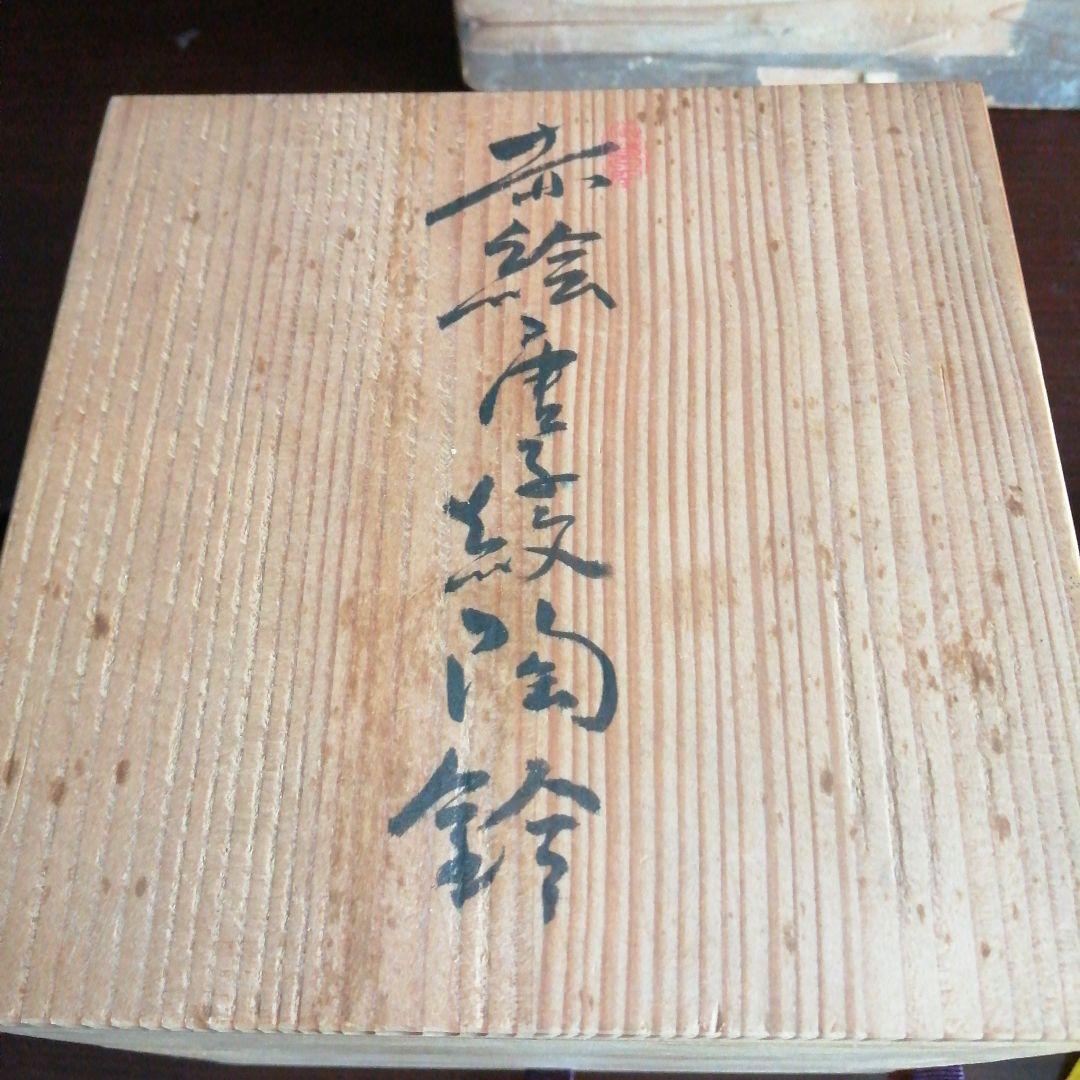 赤絵唐子紋陶鈴